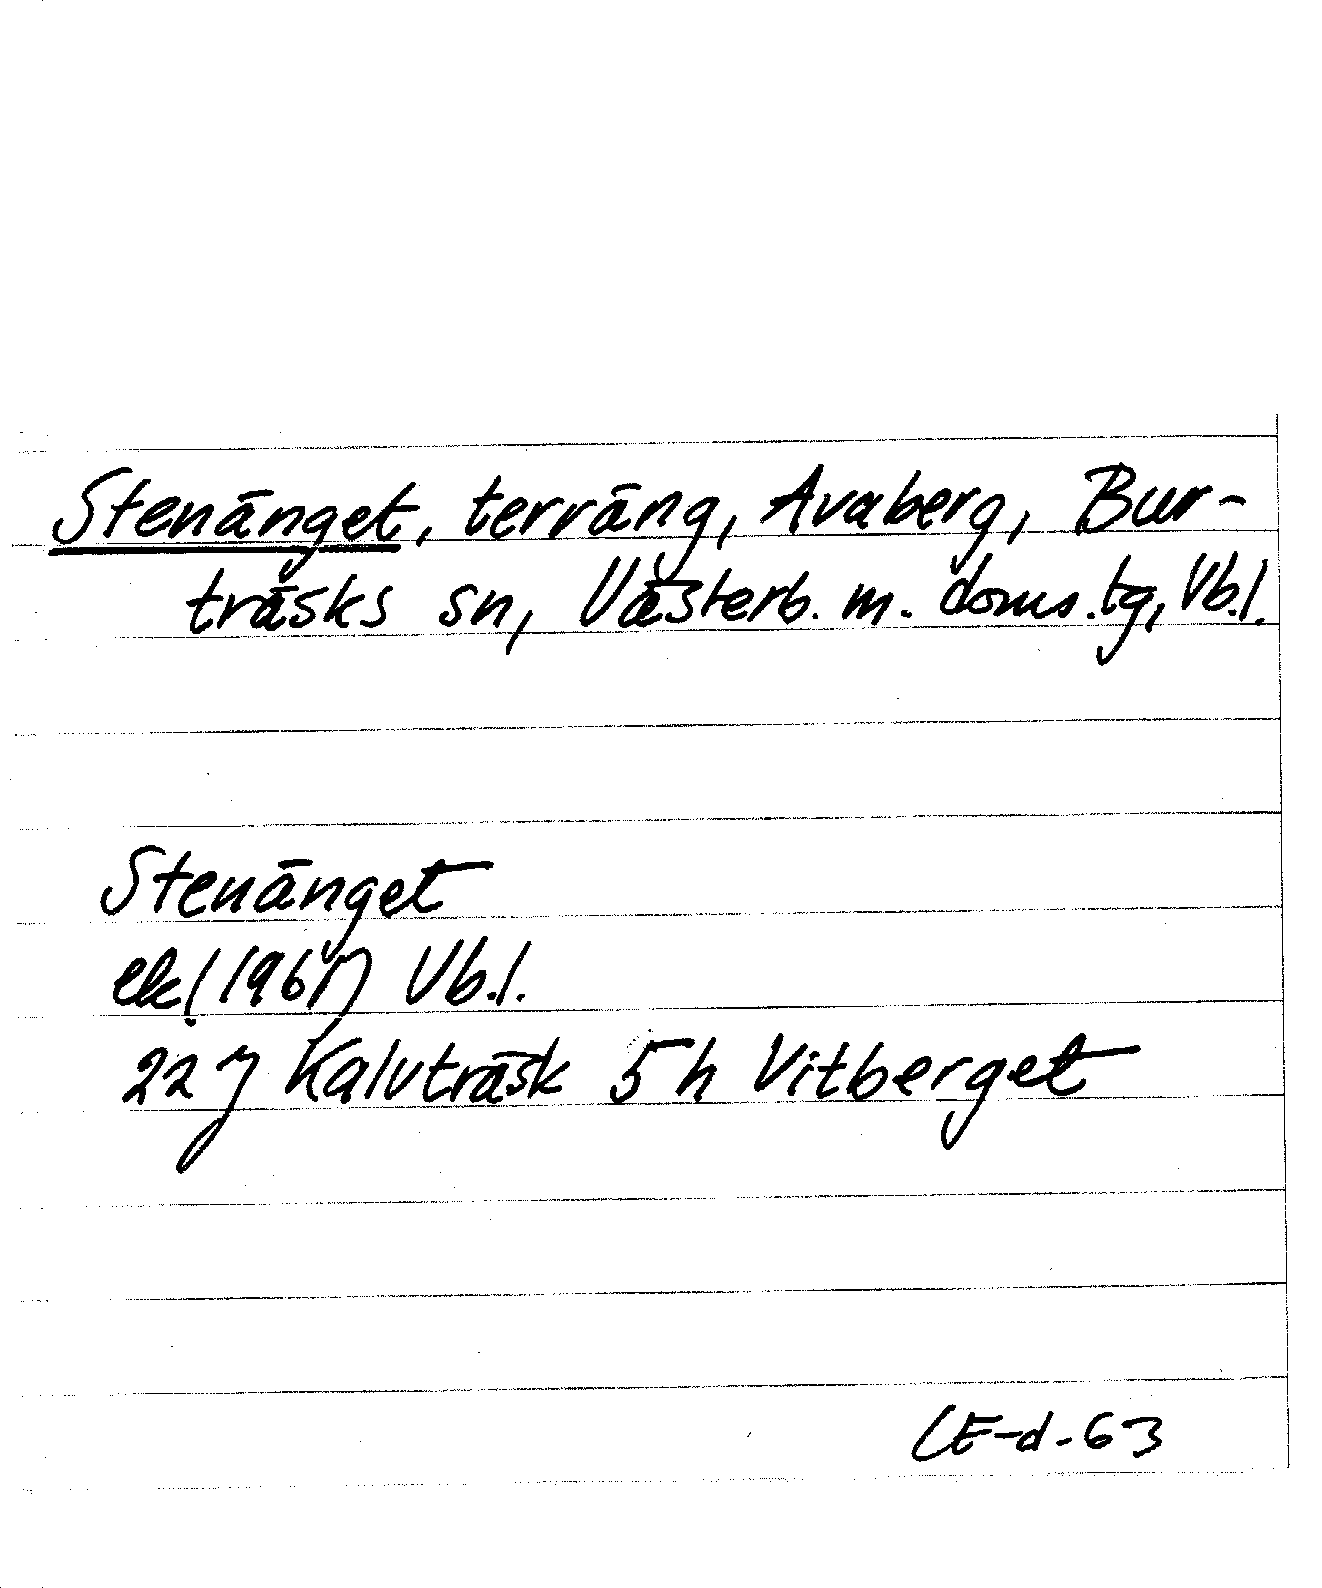 Stenänget, terräng, Avaberg, Bur-
träsks sn, Västerb. m. doms.tg, Vb.l.
Stenänget
ek (1961) Vb.l.
22 J Kalvträsk 5h Vitberget
LE-d-63